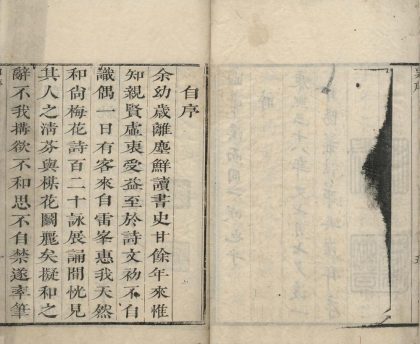 自序
余幼歲離塵鮮讀書史甘餘年來惟
知親賢虛衷受益至於詩文初不自
識偶一日有客來自雷峯惠我天然
和尙梅花詩百二十詠展誦間恍見
其人之淸芬與樑花圖麗矣擬和之
辭不我搆欲不和思不自禁遂率筆